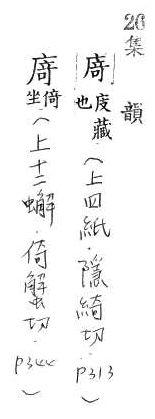 26 集韻
庋藏也(上四紙.隱綺切.p313)
倚坐(上十二蠏.倚蟹切.p344)